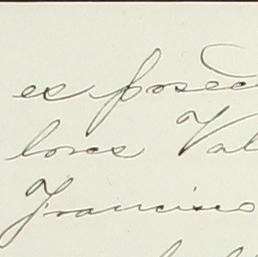 es posed
lores Val
Francisco